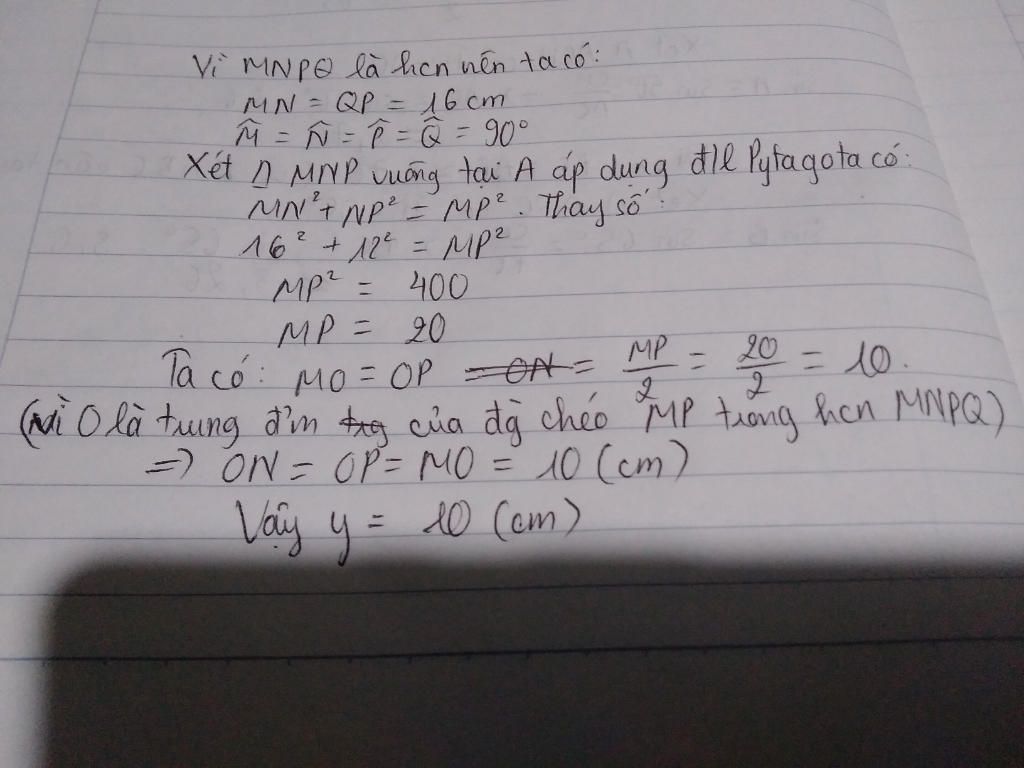 Vì MNPQ là hcn nên ta có:
MN = QP = 16 cm
M̂ = N̂ = P̂ = Q̂ = 90°
Xét Δ MNP vuông tại A áp dụng đ/l Pytago ta có:
MN² + NP² = MP². Thay số:
16² + 12² = MP²
MP² = 400
MP = 20
Ta có: MO = OP = ON = MP/2 = 20/2 = 10.
(Vì O là trung đ'm trg của đg chéo MP trong hcn MNPQ)
=> ON = OP = MO = 10 (cm)
Vậy y = 10 (cm)